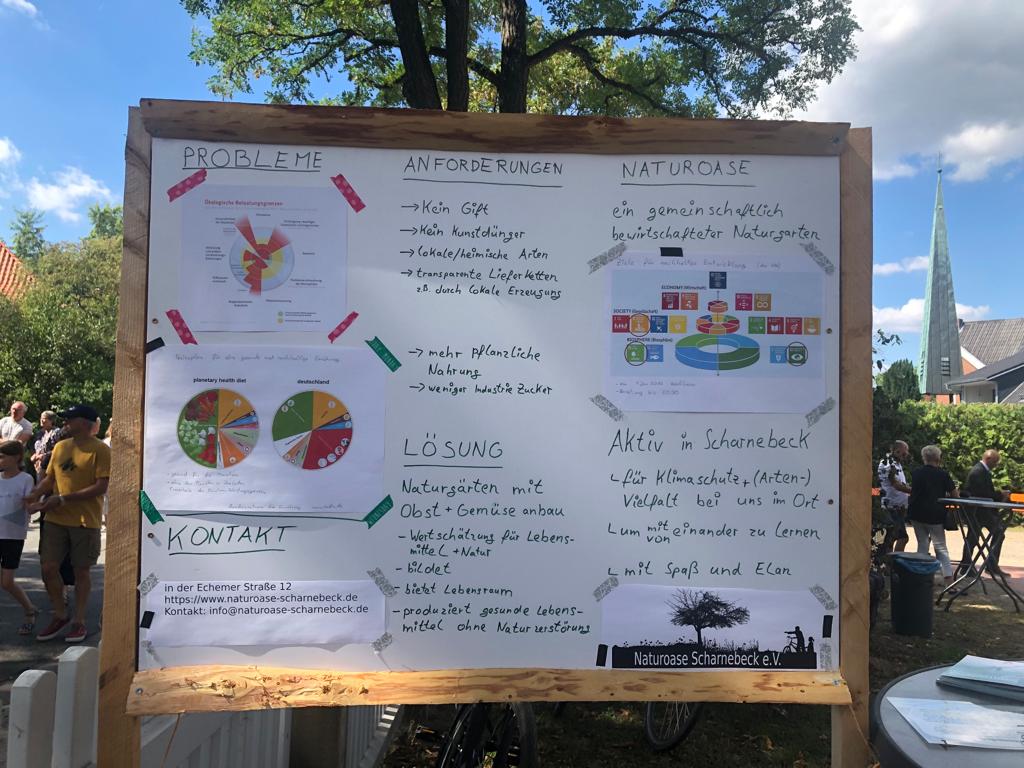 PROBLEME
Ökologische Belastungsgrenzen
planetary health diet
deutschland
KONTAKT
in der Echemer Straße 12
https://www.naturoase-scharnebeck.de
Kontakt: info@naturoase-scharnebeck.de
ANFORDERUNGEN
→ Kein Gift
→ Kein Kunstdünger
→ lokale/heimische Arten
→ transparente Lieferketten
z.B. durch lokale Erzeugung
→ mehr pflanzliche
Nahrung
→ weniger Industrie Zucker
LÖSUNG
Naturgärten mit
Obst + Gemüse anbau
- Wertschätzung für Lebens-
mittel + Natur
- bildet
- bietet Lebensraum
- produziert gesunde Lebens-
mittel ohne Naturzerstörung
NATUROASE
ein gemeinschaftlich
bewirtschafteter Naturgarten
Ziele für nachhaltige Entwicklung
ECONOMY (Wirtschaft)
SOCIETY (Gesellschaft)
BIOSPHERE (Biosphäre)
Aktiv in Scharnebeck
für Klimaschutz + (Arten-)
Vielfalt bei uns im Ort
um mit von einander zu Lernen
mit Spaß und Elan
Naturoase Scharnebeck e.V.